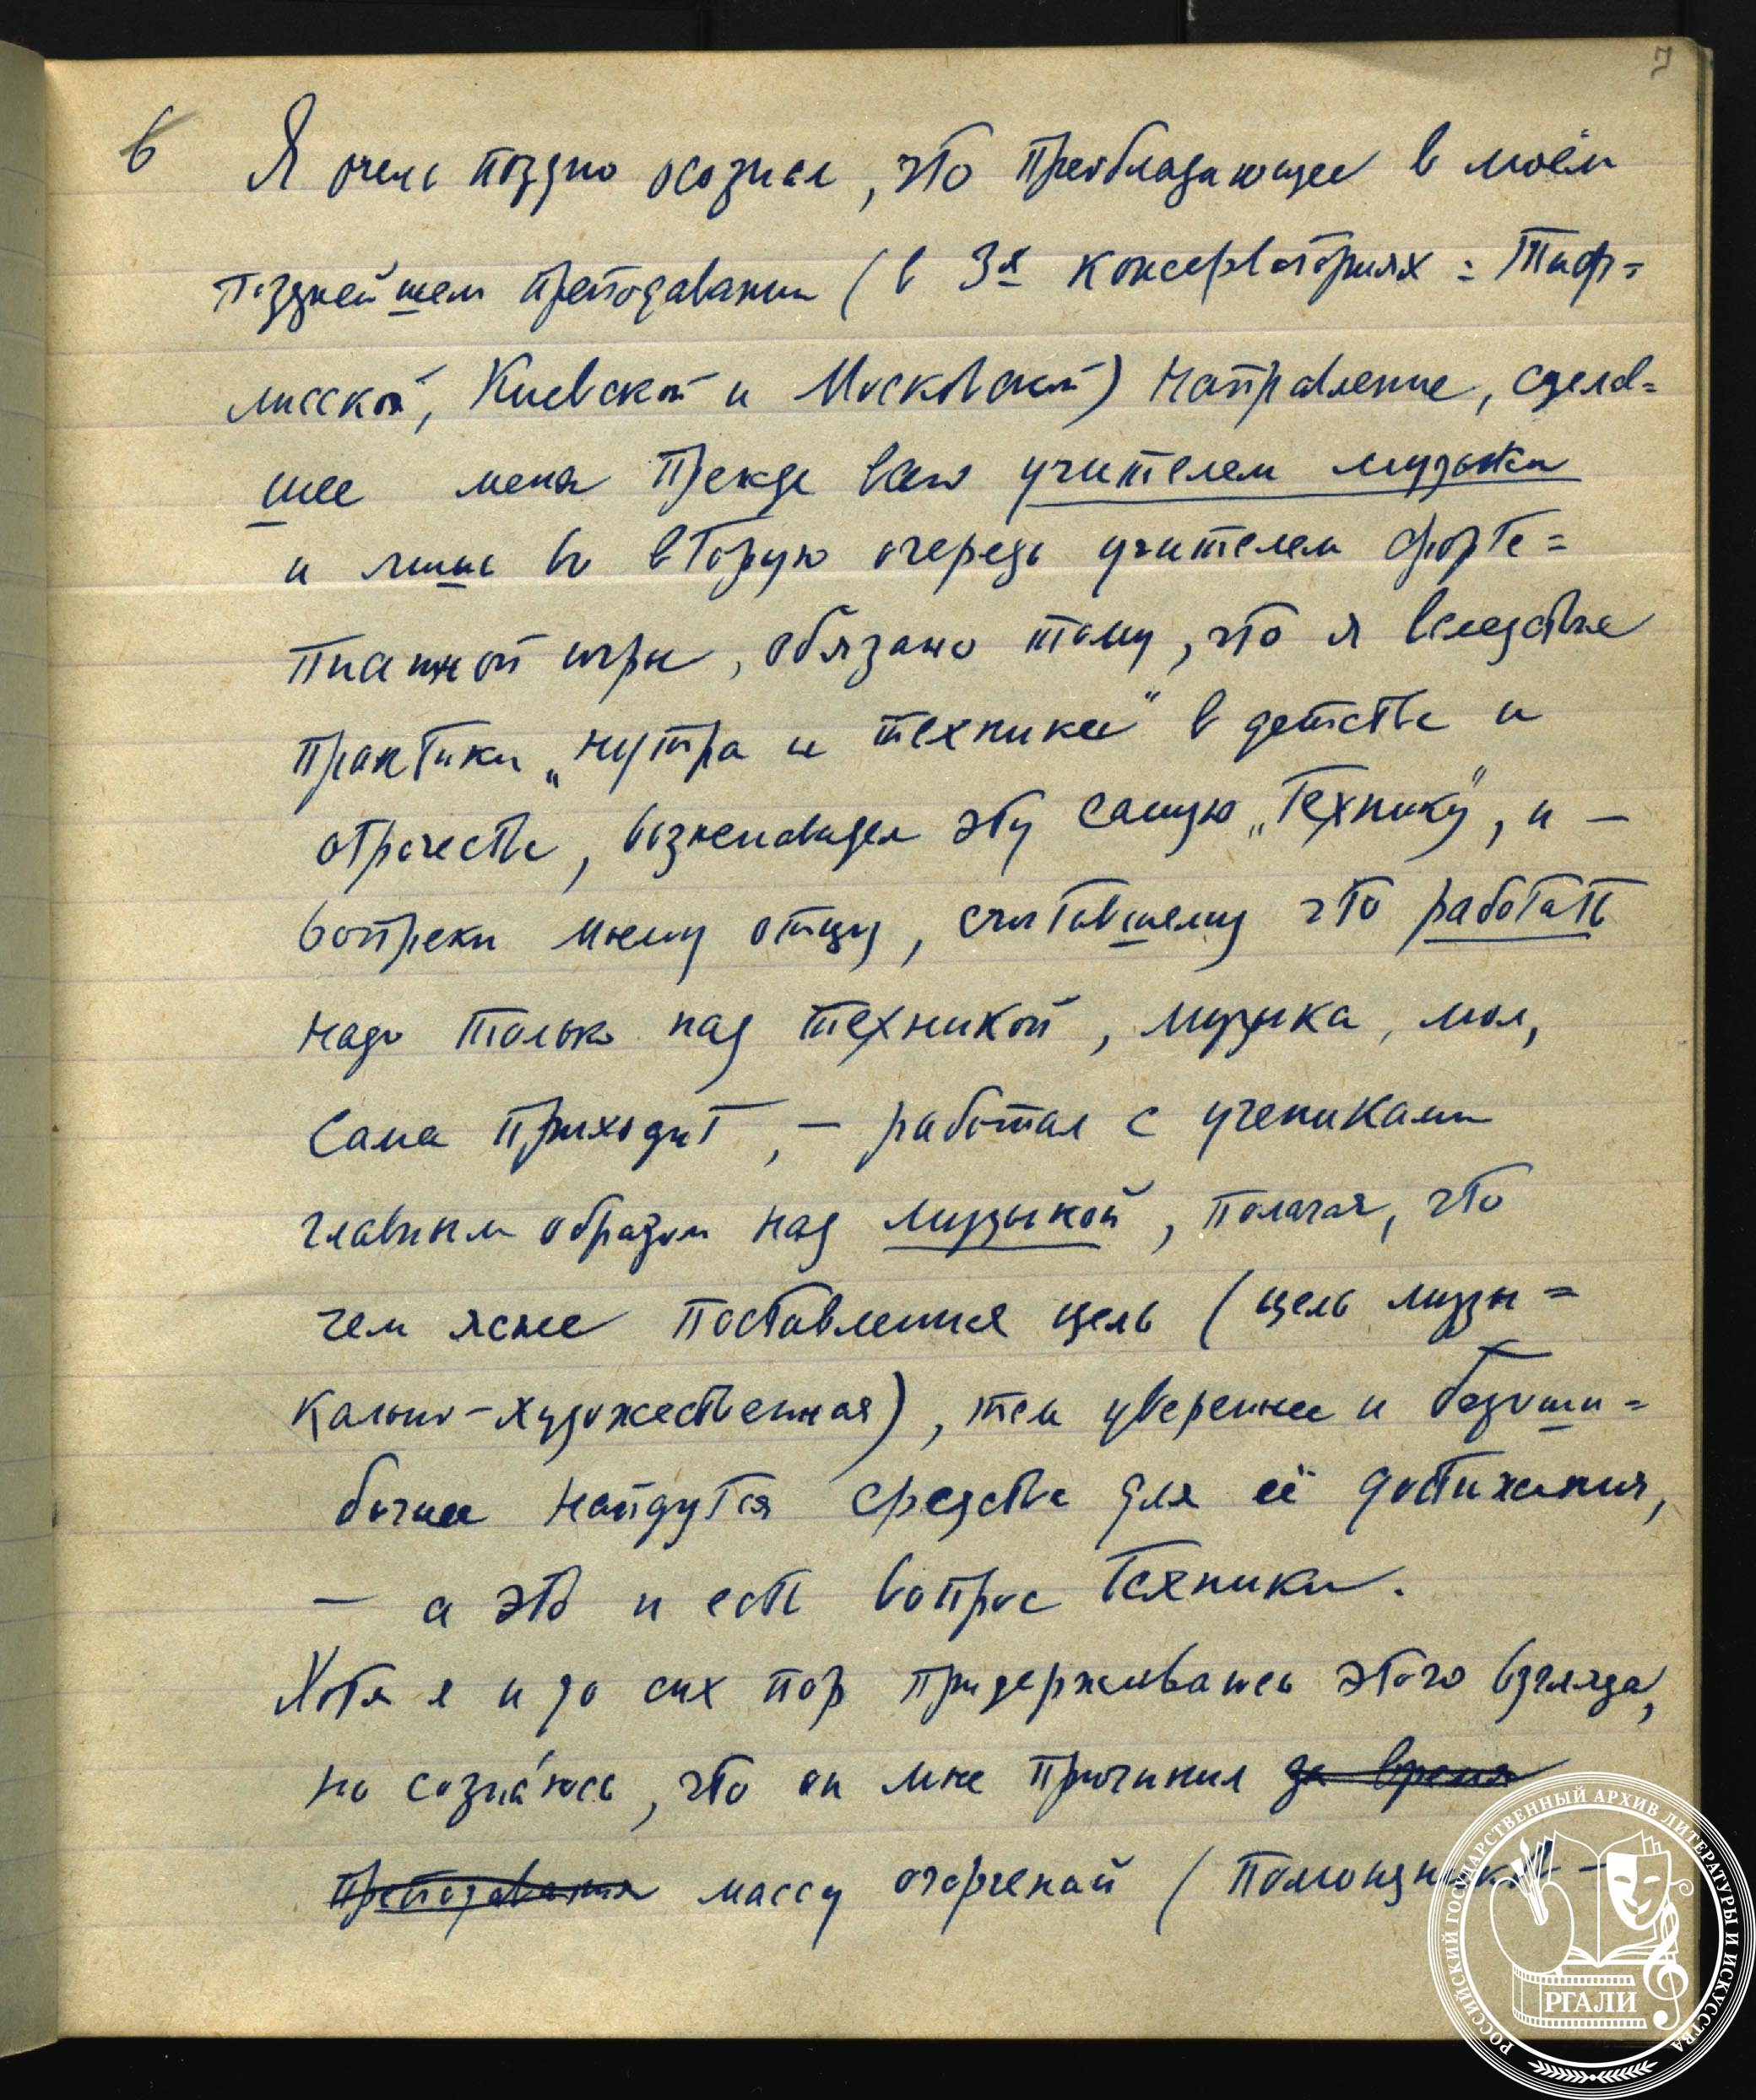 7
6 Я очень поздно осознал, что преобладающее в моём
позднейшем преподавании (в 3х консерваториях: Тиф=
лисской, Киевской и Московской) направление, сделав=
шее меня прежде всего учителем музыки
и лишь во вторую очередь учителем форте=
пианной игры, обязано тому, что я вследствие
практики „нутра и техники" в детстве и
отрочестве, возненавидел эту самую „технику", и —
вопреки моему отцу, считавшему что работать
надо только над техникой, музыка, мол,
сама приходит, — работал с учениками
главным образом над музыкой, полагая, что
чем яснее поставленная цель (цель музы=
кально-художественная), тем увереннее и безоши=
бочнее найдутся средства для её достижения,
— а это и есть вопрос техники.
Хотя я и до сих пор придерживаюсь этого взгляда,
но созна́юсь, что он мне причинил за время
преподавания массу огорчений (
РОССИЙСКИЙ ГОСУДАРСТВЕННЫЙ АРХИВ ЛИТЕРАТУРЫ И ИСКУССТВА
РГАЛИ